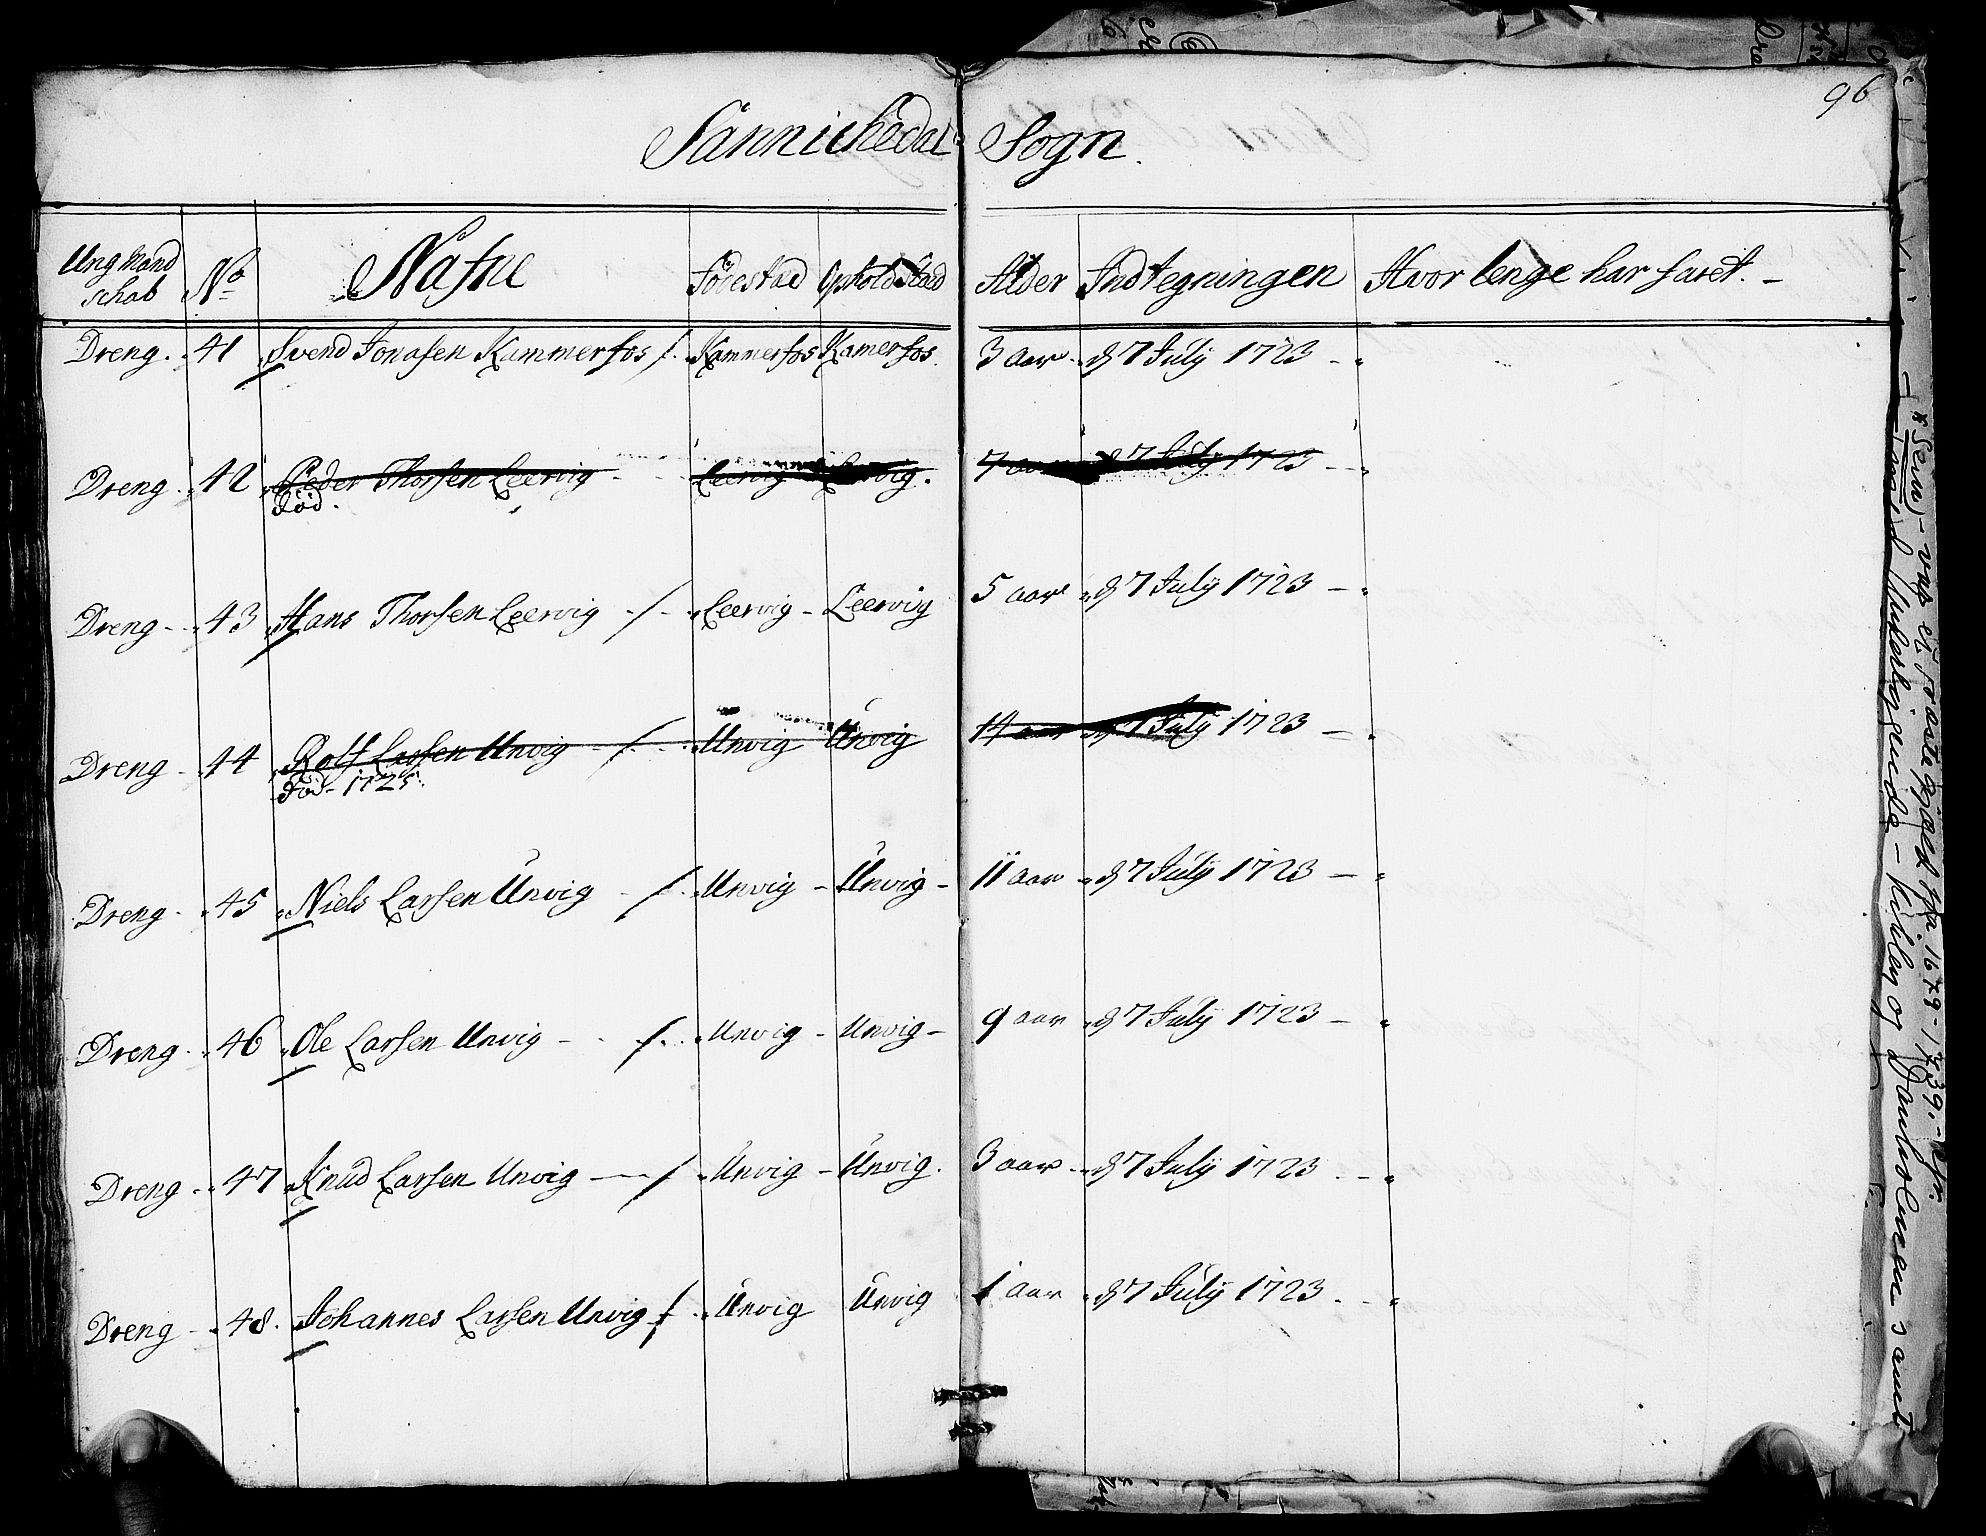 96
Sannichedal Sogn.
Ung Mand schab No Nafne Födestad Opholdstæd Alder Indtegningen Hvor lenge har faret. -
Dreng. 41 Svend Jonasen Kammerfos /. Kammerfos Kamerfos. 3 aar d 7 July 1723 -
Dreng 42 Peder Thorsen Leervig - Leervig Leervig. 7 aar d 7 July 1723 -
död.
Dreng - 43 Hans Thorsen Leervig -/- Leervig - Leervig 5 aar d 7 July 1723 -
Dreng - 44 Rolf Larsen Unvig - /. Unvig Unvig 14 aar d 7 July 1723 -
död - 1725
Dreng - 45 Niels Larsen Unvig - /. Unvig - Unvig - 11 aar d 7 July 1723 -
Dreng - 46 Ole Larsen Unvig - /. Unvig - Unvig - 9 aar d 7 July 1723 -
Dreng - 47 Knud Larsen Unvig - / Unvig - Unvig. 3 aar d 7 July 1723 -
Dreng - 48. Johannes Larsen Unvig / Unvig Unvig 1 aar d 7 July 1723 -